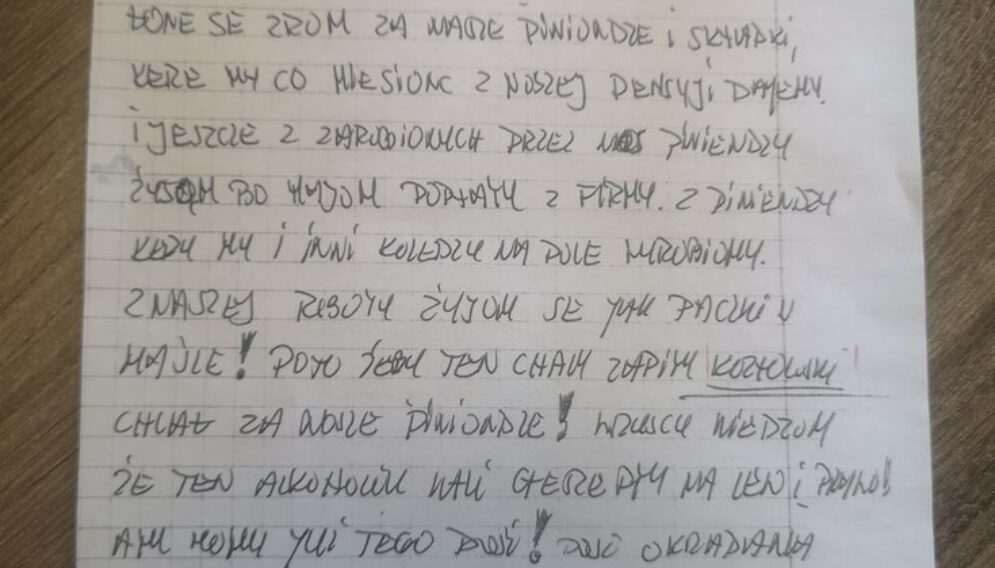 ŁONE SE ZROM ZA NASZE PINIONDZE i SKŁADKI,
KERE MY CO MIESIONC Z NOSZEJ PENSYJI DAJEMY.
i JESZCZE Z ZAROBIONYCH PRZEZ NOS PINIENDZY
ŻYJOM BO MAJOM PODATKY Z FIRMY. Z PINIENDZY
KERE MY I INNI KOLEDZY NA DOLE WYROBIOMY.
Z NASZEJ ROBOTY ŻYJOM SE JAK PĄCZKI W
MAŚLE! PO TO ŻEBY TEN CHAM ZAPITY KOZŁOWSKI
CHLAŁ ZA NOSZE PINIONDZE! WSZYSCY WIEDZOM
ŻE TEN ALKOHOLIK WALI STERE DNI NA
AMY MOMY JUŻ TEGO DOŚĆ! DOŚĆ OKRADANIA